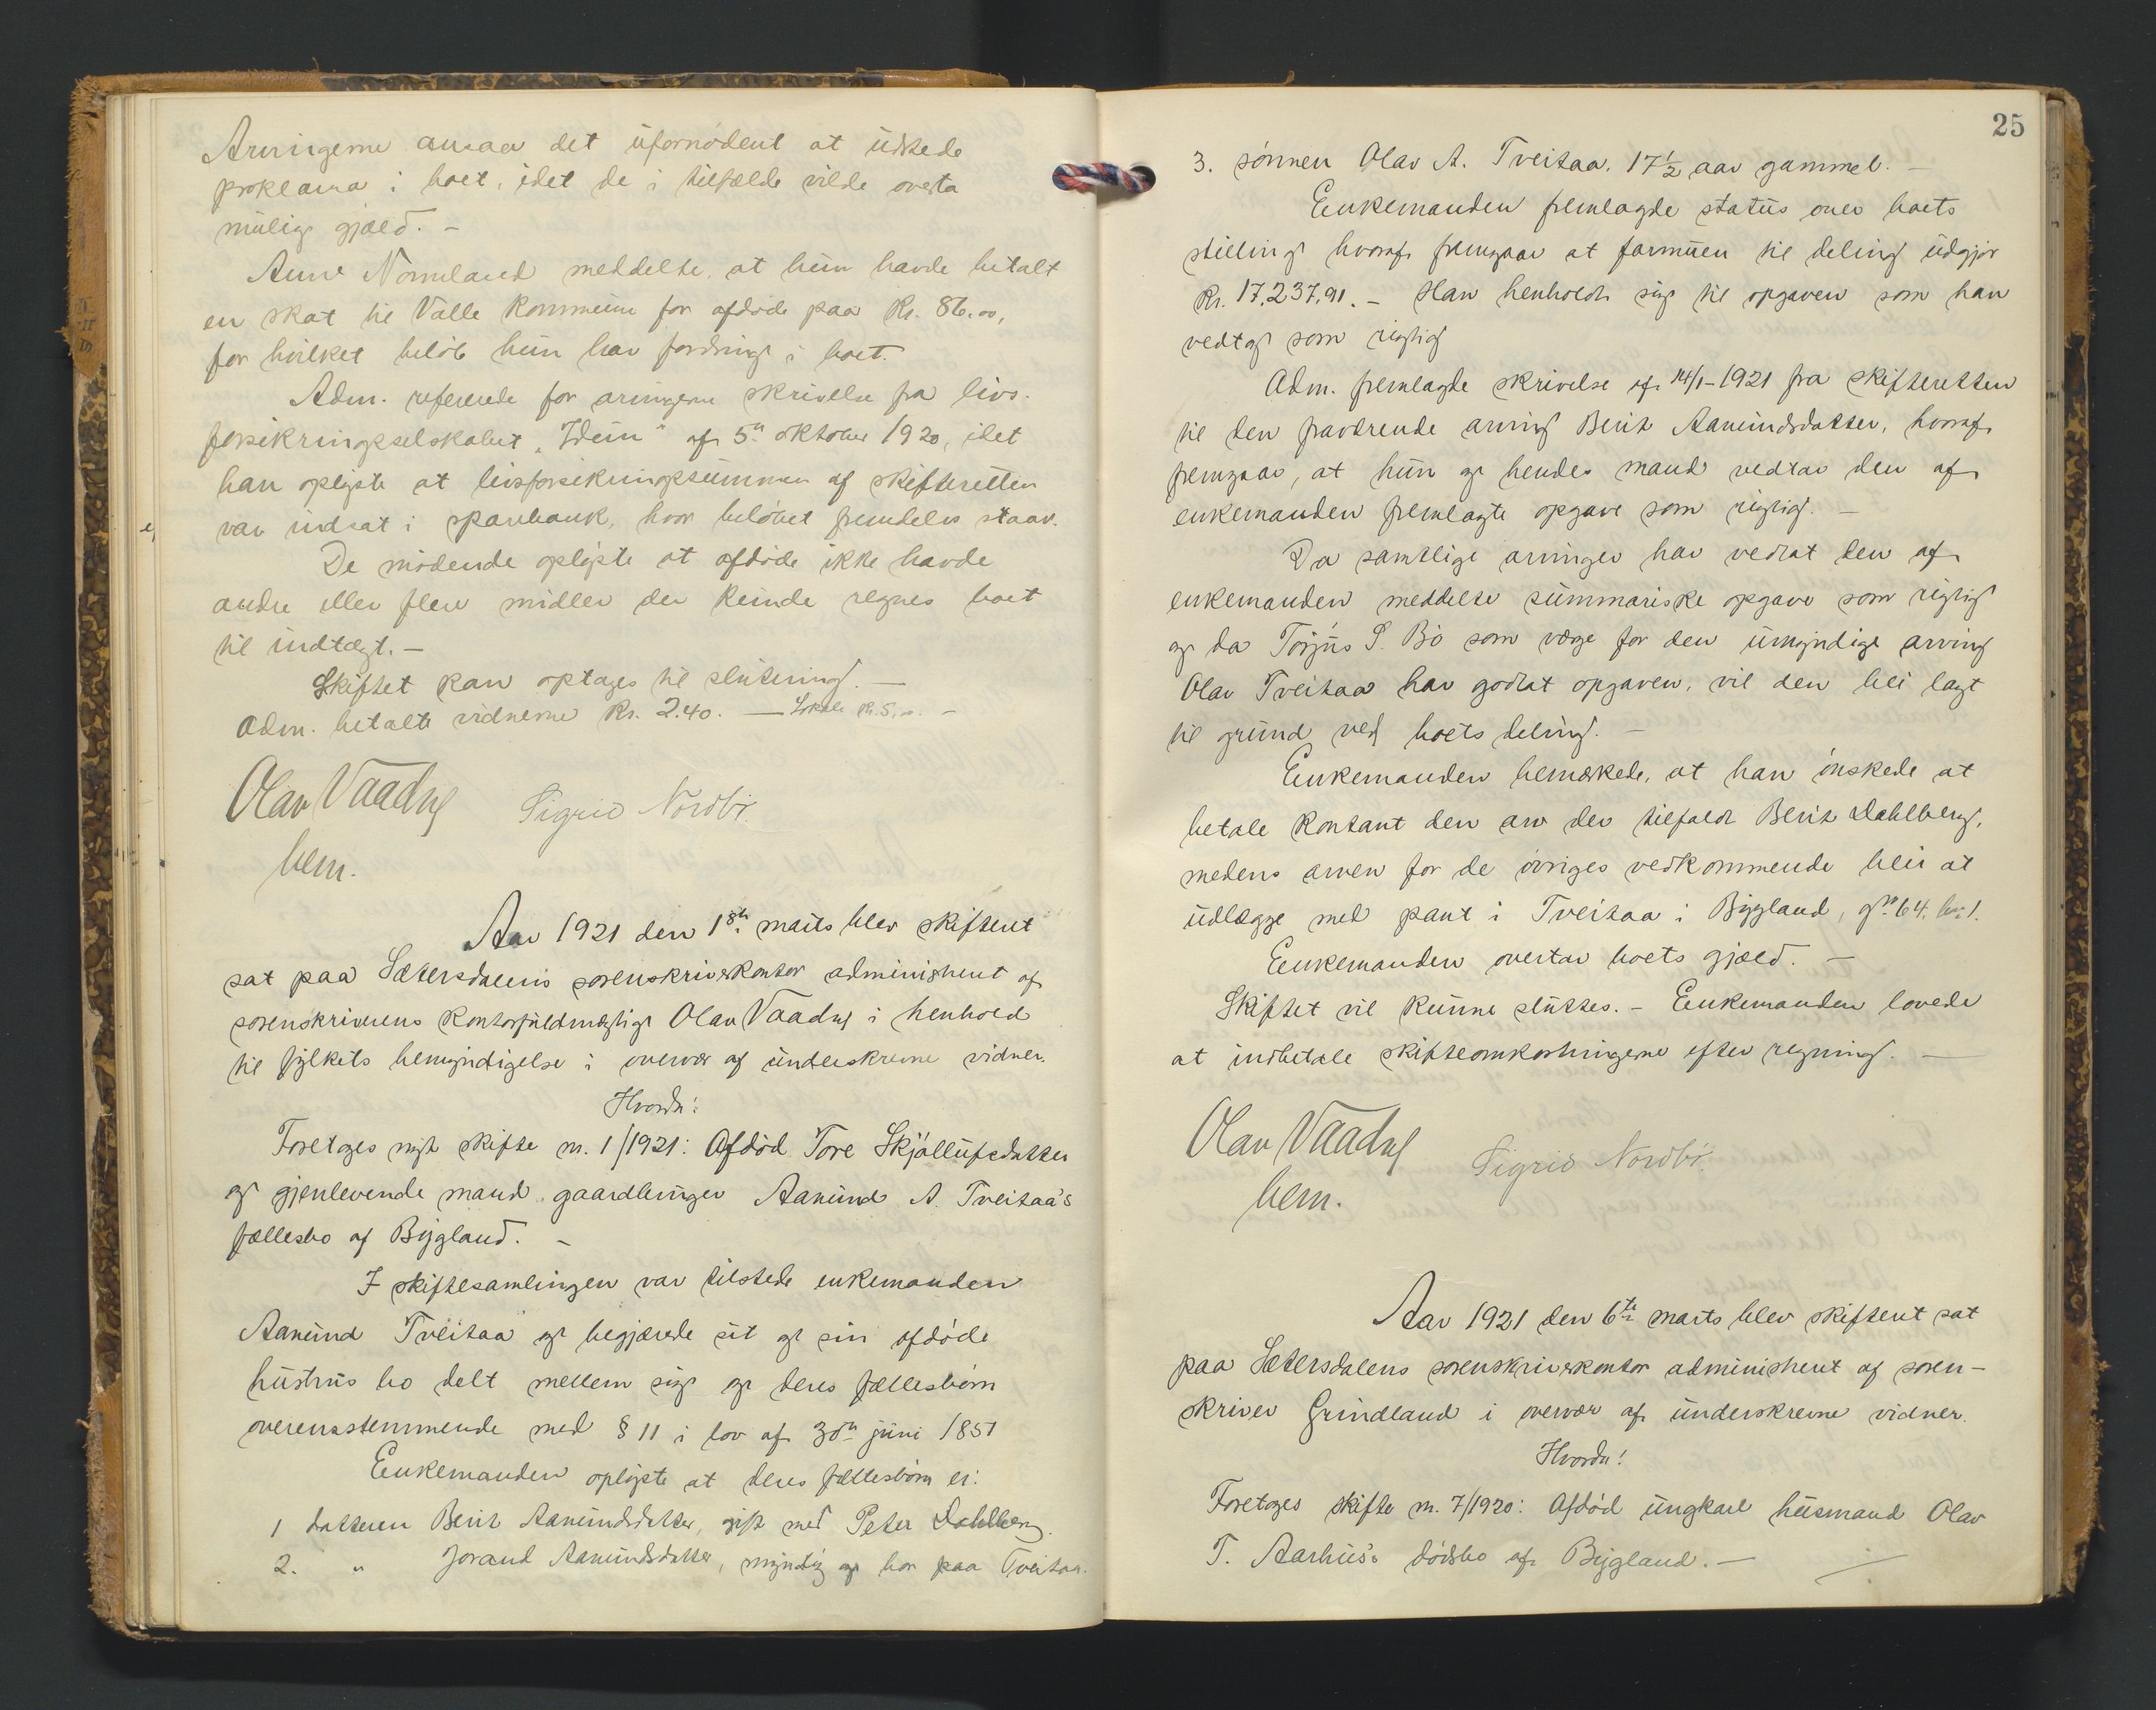 Arvingerne ansaa det ufornødent at utstede
proklama i boet, idet de i tilfælde vilde overta
mulig gjæld. –
Anne Nomeland meddelte, at hun havde betalt
en skat til Valle Kommune for afdøde paa Kr. 86.00,
for hvilket beløb hun har fordring i boet.
Adm. refererede for arvingerne skrivelse fra livs-
forsikringsselskabet „Idun" af 5te oktober 1920, idet
han oplyste at livsforsikringssummen af skifteretten
var indsat i sparebank, hvor beløbet fremdeles staar.
De mødende oplyste at afdøde ikke havde
andre eller flere midler der kunde regnes boet
til indtægt. –
Skiftet kan optages til slutning. –
Adm. betalte vidnerne Kr. 2.40. — Lokale Kr. 5.00. –
Olav Vaadny Sigrid Nordbø.
bem.
Aar 1921 den 1ste marts blev skifteret
sat paa Sætersdalens sorenskriverkontor administreret af
sorenskriverens kontorfuldmægtig Olav Vaadny i henhold
til fylkets bemyndigelse i overvær af underskrevne vidner.
Hvorda:
Foretoges nyt skifte nr. 1/1921: Afdød Tore Skjøllufsdatter
og gjenlevende mand, gaardbruger Aanund A. Tveitaa's
fællesbo af Bygland. –
I skiftesamlingen var tilstede enkemanden
Aanund Tveitaa og begjærede sit og sin afdøde
hustrus bo delt mellem sig og deres fællesbørn
overensstemmende med § 11 i lov af 30te juni 1851
Enkemanden oplyste at deres fællesbørn er:
1 datteren Berit Aanundsdatter, gift med Peter Dahlberg.
2. " Jorand Aanundsdatter, myndig og bor paa Tveitaa.
25
3. sønnen Olav A. Tveitaa. 17½ aar gammel. –
Enkemanden fremlagde status over boets
stilling hvoraf fremgaar at formuen til deling udgjør
Kr. 17.237,91. – Han henholdt sig til opgaven som han
vedtog som rigtig
Adm. fremlagde skrivelse af 14/1-1921 fra skifteretten
til den fraværende arving Berit Aanundsdatter, hvoraf
fremgaar, at hun og hendes mand vedtar den af
enkemanden fremlagte opgave som rigtig. –
Da samtlige arvinger har vedtat den af
enkemanden meddelte summariske opgave som rigtig
og da Torjus S. Bø som verge for den umyndige arving
Olav Tveitaa har godtat opgaven, vil den bli lagt
til grund ved boets deling. –
Enkemanden bemerkede, at han ønskede at
betale kontant den arv der tilfaldt Berit Dahlberg,
medens arven for de øvriges vedkommende blir at
udlægge med pant i Tveitaa i Bygland, gno 64. bno 1.
Enkemanden overtar boets gjæld. –
Skiftet vil kunne sluttes. – Enkemanden lovede
at indbetale skifteomkostningerne efter regning. –
Olav Vaadny Sigrid Nordbø.
bem.
Aar 1921 den 6te marts blev skifteret sat
paa Sætersdalens sorenskriverkontor administreret af soren-
skriver Grindland i overvær af underskrevne vidner.
Hvorda:
Foretoges skifte nr. 7/1920: Afdød ungkarl husmand Olav
T. Aarhus's dødsbo af Bygland. –